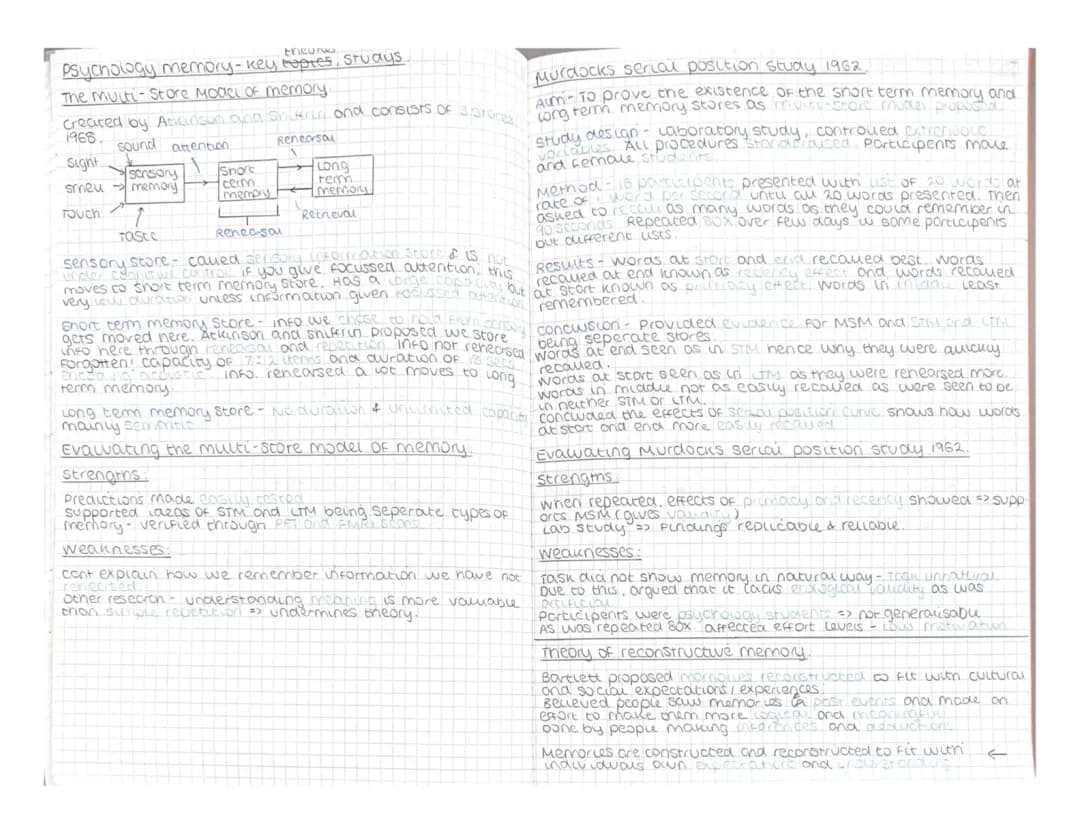 theories
Psychology memory - key topics, studys
The Multi-Store Model of memory
created by Atkinson and Shiffrin and consists of 3 stores
1968.
sound attention Rehearsal
Sight
smell
Touch
Taste
sensory memory
Short term memory
Long term memory
Retrieval
Rehearsal
sensory store - called sensory information store & is not
under cognitive control. if you give focussed attention, this
moves to short term memory store. Has a large capacity, but
very low duration unless information given focussed attention
Short term memory store - info we chose to hold from sensory
gets moved here. Atkinson and shiffrin proposed we store
info here through rehearsal and repetition. Info not rehearsed
forgotten! capacity of 7±2 items and duration of 18 secs
Encoding acoustic. info rehearsed a lot moves to long
term memory.
Long term memory store - No duration & unlimited capacity
mainly semantic
Evaluating the multi-store model of memory.
strengths:
Predictions made easily tested
supported ideas of STM and LTM being seperate types of
memory - verified through PET and FMRI scans
Weaknesses:
cant explain how we remember information we have not
rehersed
Other research - understanding meaning is more valuable
than simple repetition => undermines theory.
Murdocks serial position study 1962.
Aim - To prove the existence of the short term memory and
long term memory stores as multi-store model proposed.
Study design - Laboratory study, controlled extraneous
variables. All procedures standardised. Participants male
and female students
Method - 16 participants presented with list of 20 words at
rate of 1 word per second until all 20 words presented. Then
asked to recall as many words as they could remember in
90 seconds. Repeated 80x over few days w some participants
but different lists.
Results - words at start and end recalled best. words
recalled at end known as recency effect and words recalled
at start known as primacy effect. Words in middle least
remembered.
Conclusion - Provided evidence for MSM and STM and LTM
being seperate stores.
Words at end seen as in STM hence why they were quickly
recalled.
Words at start seen as in LTM as they were rehearsed more.
Words in middle not as easily recalled as were seen to be
in neither STM or LTM.
concluded the effects of serial position curve shows how words
at start and end more easily recalled
Evaluating Murdocks serial position study 1962.
strengths:
When repeated, effects of primacy and recency showed => supp-
orts MSM (gives validity)
Lab study => Findings replicable & reliable.
Weaknesses:
Task did not show memory in natural way - Task unnatural
Due to this, argued that it lacks ecological validity as was
artificial
Participants were psychology students => not generalisable
As was repeated 80x affected effort levels - low motivation
Theory of reconstructive memory.
Bartlett proposed memories reconstructed to fit with cultural
and social expectations/experiences.
Believed people saw memories of past events and made an
effort to make them more logical and meaningful
Done by people making inferences and
Memories are constructed and reconstructed to fit with ←
individuals own expectations and understanding